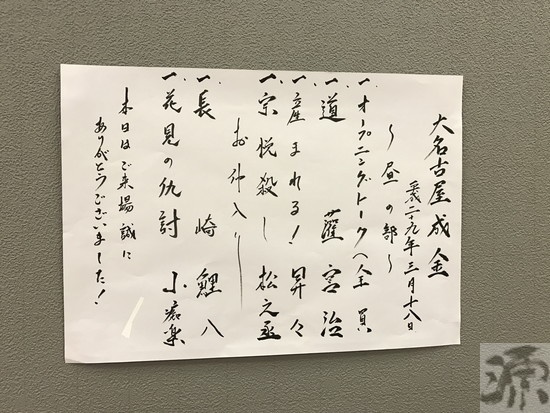 大名古屋成金
平成二十九年三月十八日
〜昼の部〜
一、オープニングトーク 全員
一、道灌 宮治
一、産まれる！ 昇々
一、宗悦殺し 松之丞
お仲入り
一、長崎 鯉八
一、花見の仇討 小痴楽
本日はご来場誠に
ありがとうございました！
源